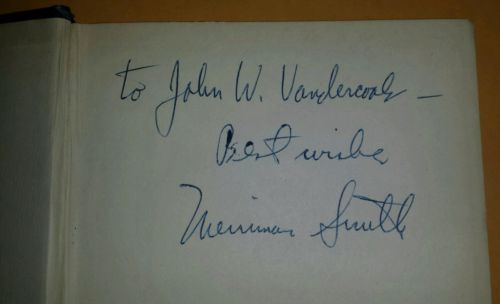 to John W. Vandercook —
Best wishes
Merriman Smith